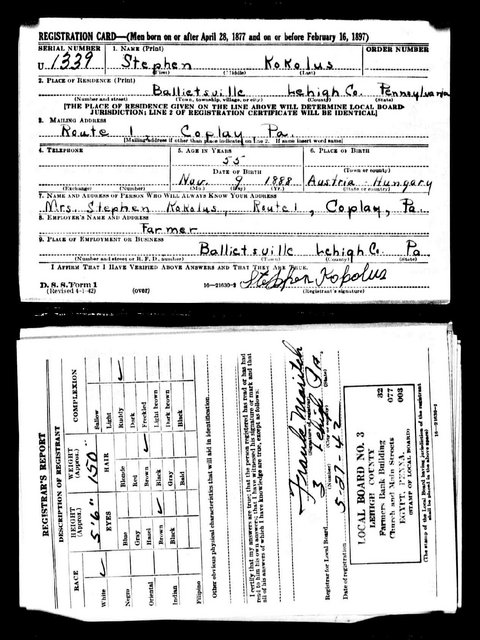 REGISTRATION CARD—(Men born on or after April 28, 1877 and on or before February 16, 1897)
SERIAL NUMBER 1. NAME (Print) ORDER NUMBER
U 1339 Stephen Kokolus
(First) (Middle) (Last)
2. PLACE OF RESIDENCE (Print)
Ballietsville Lehigh Co. Pennsylvania
(Number and street) (Town, township, village, or city) (County) (State)
[THE PLACE OF RESIDENCE GIVEN ON THE LINE ABOVE WILL DETERMINE LOCAL BOARD
JURISDICTION; LINE 2 OF REGISTRATION CERTIFICATE WILL BE IDENTICAL]
3. MAILING ADDRESS
Route 1 Coplay Pa.
[Mailing address if other than place indicated on line 2. If same insert word same]
4. TELEPHONE 5. AGE IN YEARS 6. PLACE OF BIRTH
55
DATE OF BIRTH (Town or county)
Nov. 9 1888 Austria-Hungary
(Exchange) (Number) (Mo.) (Day) (Yr.) (State or country)
7. NAME AND ADDRESS OF PERSON WHO WILL ALWAYS KNOW YOUR ADDRESS
Mrs. Stephen Kokolus, Route 1, Coplay, Pa.
8. EMPLOYER'S NAME AND ADDRESS
Farmer
9. PLACE OF EMPLOYMENT OR BUSINESS
Ballietsville Lehigh Co. Pa
(Number and street or R. F. D. number) (Town) (County) (State)
I AFFIRM THAT I HAVE VERIFIED ABOVE ANSWERS AND THAT THEY ARE TRUE.
D. S. S. Form 1 Stephen Kokolus
(Revised 4-1-42) (over) 16—21630-2 (Registrant's signature)
REGISTRAR'S REPORT
DESCRIPTION OF REGISTRANT
RACE HEIGHT (Approx.) WEIGHT (Approx.) COMPLEXION
5'6" 150
White EYES HAIR Sallow
Light
Negro Blue Blonde Ruddy
Gray Red Dark
Oriental Hazel Brown Freckled
Brown Black Light brown
Indian Black Gray Dark brown
Bald Black
Filipino
Other obvious physical characteristics that will aid in identification
I certify that my answers are true; that the person registered has read or has had
read to him his own answers; that I have witnessed his signature or mark and that
all of his answers of which I have knowledge are true, except as follows:
Registrar for Local Board 3 Lehigh Pa.
(Number)
Date of registration 5-27-42
LOCAL BOARD NO. 3 32
LEHIGH COUNTY 077
Farmers Bank Building 003
Church and Main Streets
EGYPT, PENNA.
(STAMP OF LOCAL BOARD)
(The stamp of the Local Board having jurisdiction of the registrant
shall be placed in the above space.)
16—21630-2